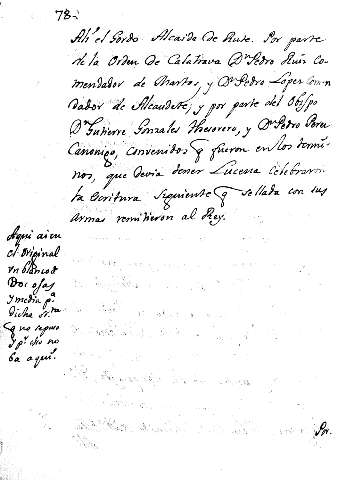 78.
Alf.º el Gordo Alcaide de Rute. Por parte
de la Orden de Calatrava D.n Pedro Ruiz Co-
mendador de Martos, y D.n Pedro Lopez Comen-
dador de Alcaudete; y por parte del Obispo
D.n Gutierre Gonzales thesorero, y D.n Pedro Perez
Canonigo, convenidos q fueron en los termi-
nos, que devia tener Lucena celebraron
la escritura siguiente q sellada con sus
armas remitieron al Rey.
Aqui ai en
el original
un blanco de
Dos ojas
y media p.a
dicha scr.ra
q no se puso
y p.r eso no
ba aqui.
Por